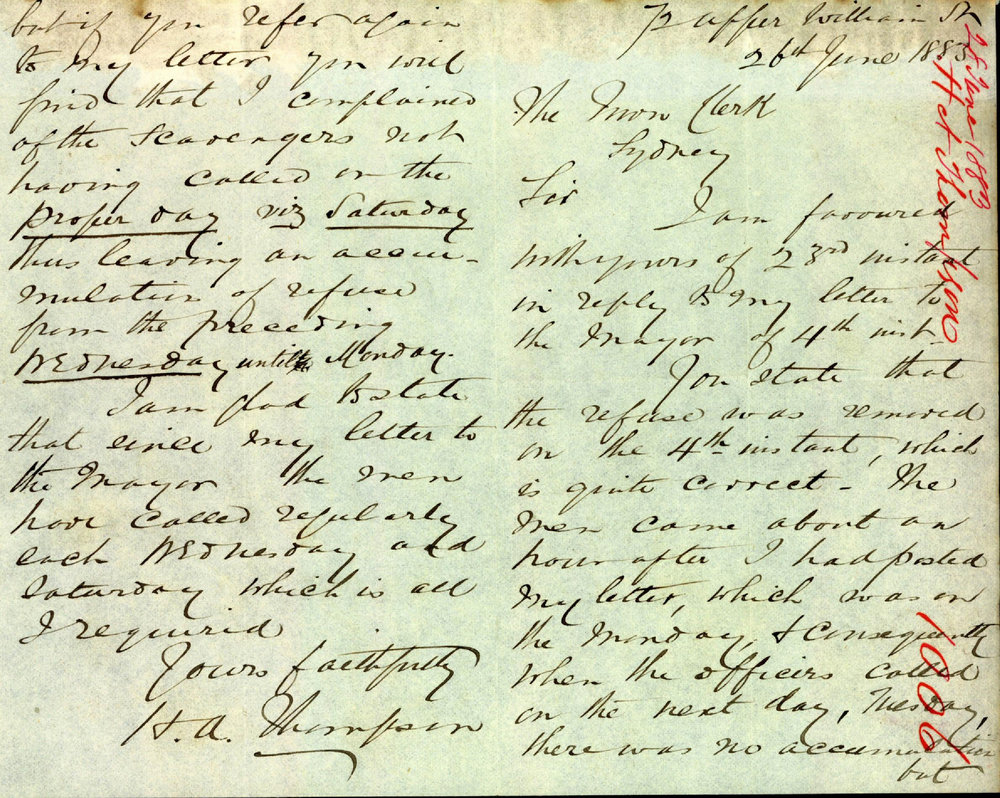 72 Upper William St
26th June 1883
The Town Clerk
Sydney
Sir
I am favoured
with yours of 23rd instant
in reply to my letter to
the Mayor of 4th inst.
You state that
the refuse was removed
on the 4th instant, which
is quite correct - The
men came about an
hour after I had posted
my letter, which was on
the Monday, & consequently
when the officers called
on the next day, Tuesday,
there was no accumulation
but
but if you refer again
to my letter you will
find that I complained
of the Scavengers not
having called on the
proper day viz Saturday
thus leaving an accu-
mulation of refuse
from the preceding
Wednesday until Monday.
I am glad to state
that since my letter to
the Mayor the men
have called regularly
each Wednesday and
Saturday which is all
I required
Yours faithfully
H. A. Thompson
28 June 1883
H A Thompson
1006